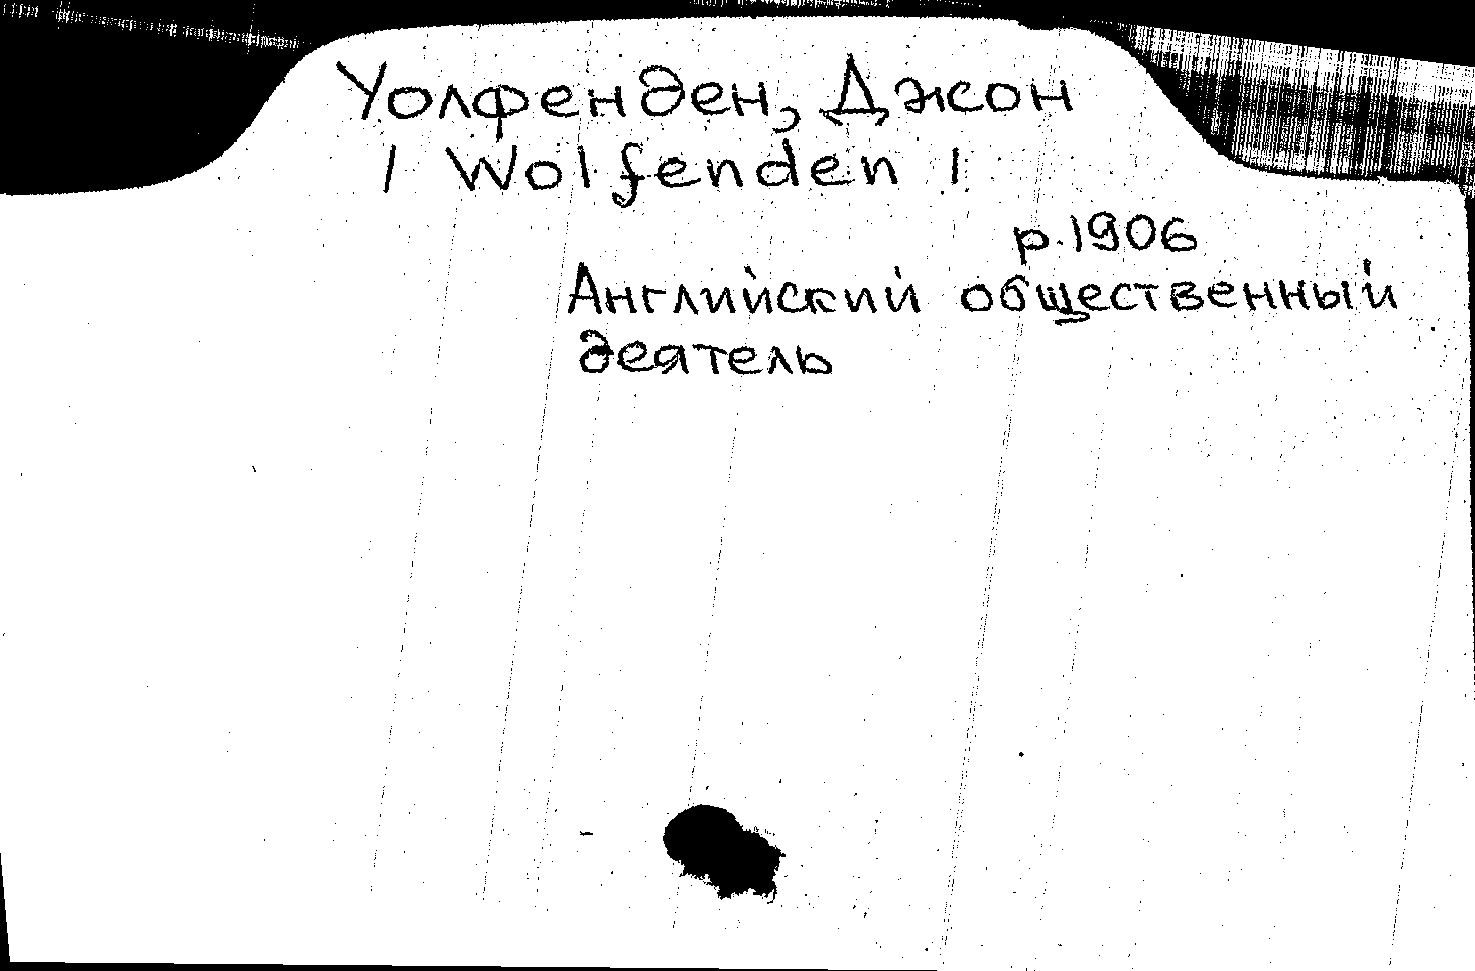 Уолфенден, Джон
/ Wolfenden /
р.1906
Английский общественный
деятель